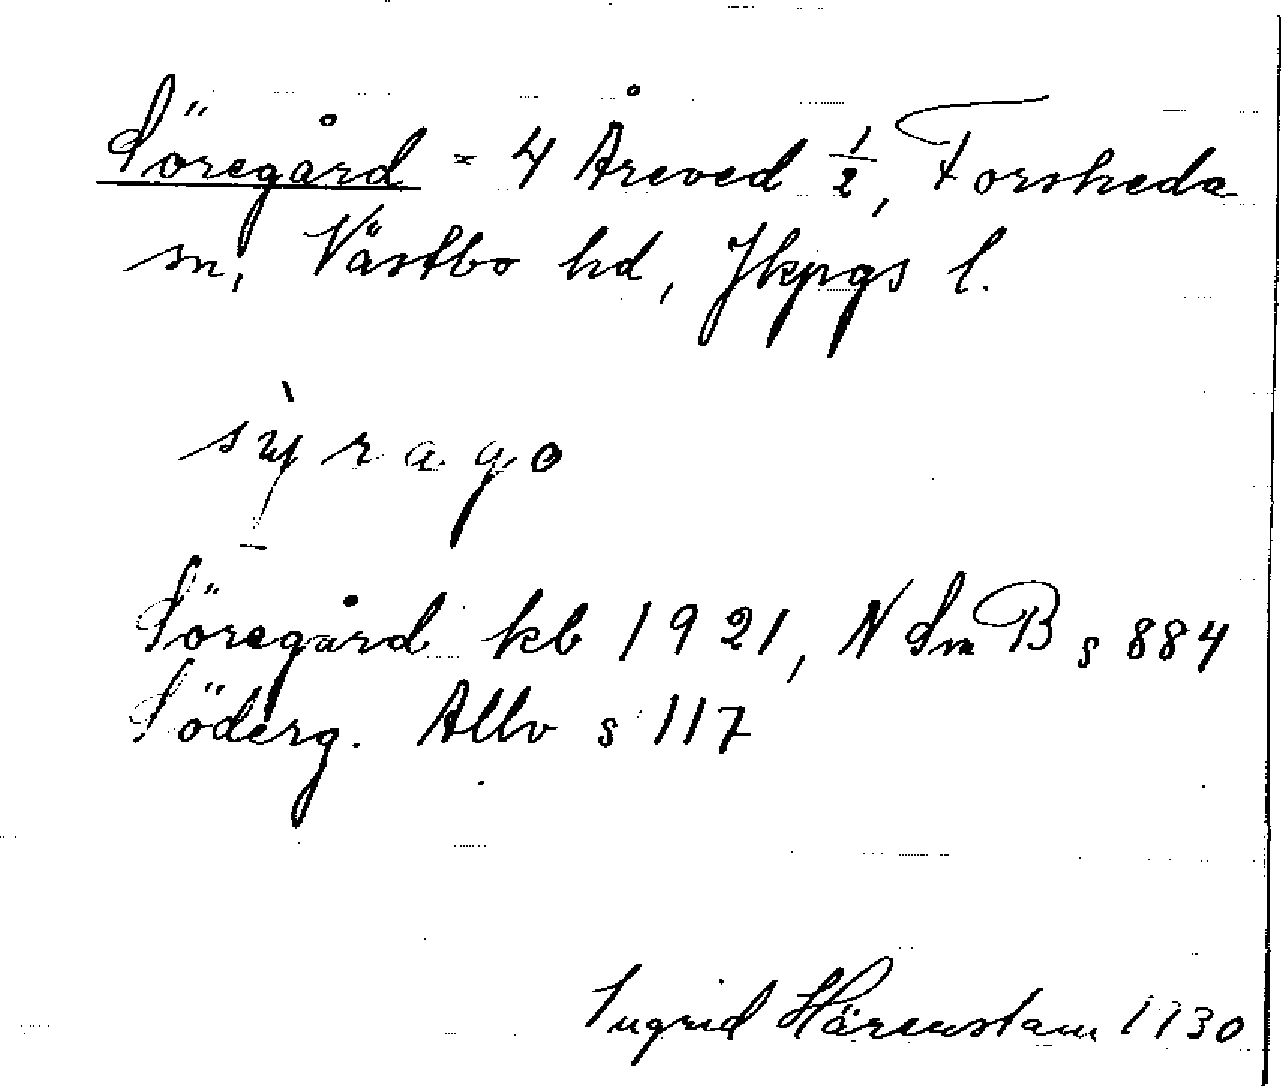 Söregård = 4 Åreved 1/2, Forsheda
sn, Västbo hd, Jkpgs l.
sỳrago
Söregård kb 1921, N Sm B s 884
Söderg. Allv s 117
Ingrid Härenstam 1930